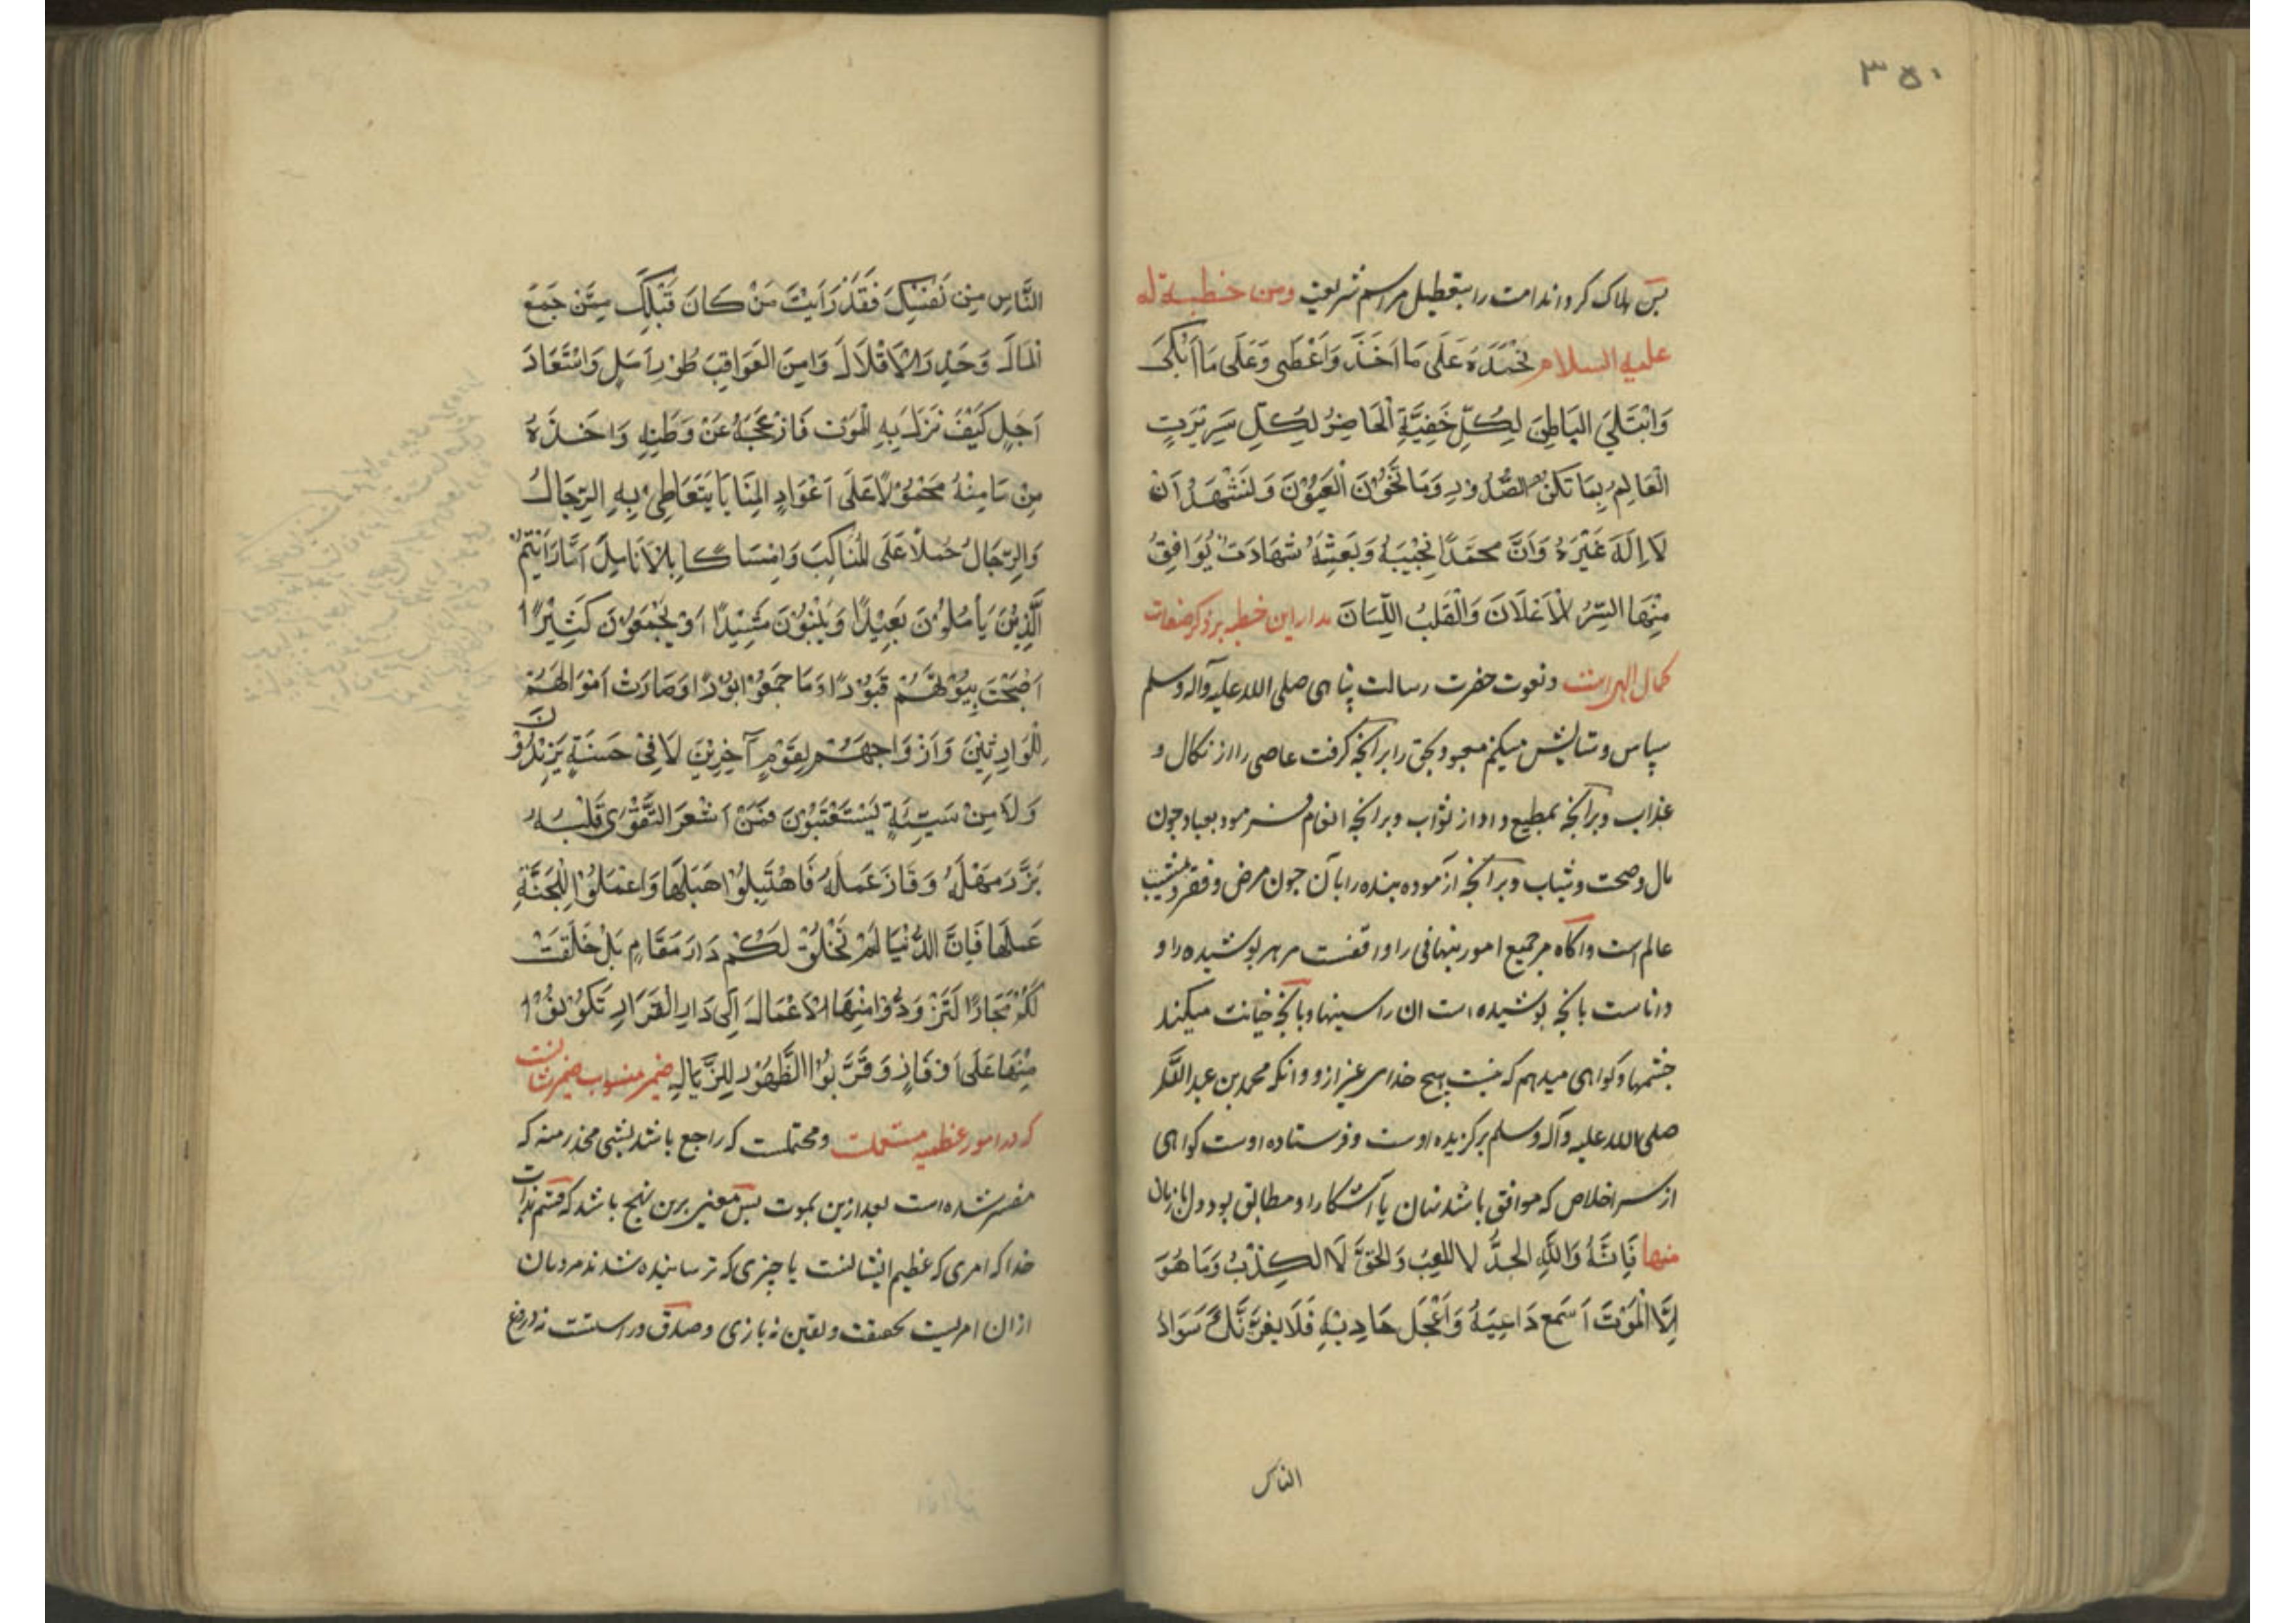 ۳۵۰
پس هلاک کردواند امت را بتعطیل مراسم شریعت ومن خطبة له
علیه السلام نَحْمَدُهُ عَلَى مَا اَخَذَ وَاَعْطَى وَعَلَى مَا اَبْلَى
وَابْتَلَى البَاطِنَ لِكُلِّ خَفِيَّةٍ الْحَاضِرُ لِكُلِّ سَرِيْرَةٍ
الْعَالِمِ بِمَا تَكُنُّ الصُّدُورِ وَمَا تَخُوْنَ الْعَيُوْنَ وَنَشْهَدُ اَنْ
لَا اِلَهَ غَيْرَهُ وَاَنَّ مُحَمَّدًا نَجِيْبَهُ وَبَعِيْثَهُ شَهَادَتْ يُوَافِقُ
مِنْهَا السِّرُّ الْاَعْلَانَ وَالْقَلْبُ اللِّسَانَ مدار این خطبه بر ذکر صفات
کمال الهی است و نعوت حضرت رسالت پناهی صلی الله علیه وآله وسلم
سپاس وستایش میکنم معبود بحق را برآنچه گرفت عاصی را از نکال و
عذاب وبرآنچه بمطیع داد از ثواب وبرآنچه انعام فرمود بعباد چون
مال وصحت وشباب وبرآنچه آزموده بنده را بآن چون مرض وفقر ومشیب
عالم است وآگاه مر جمیع امور پنهانی را واقفست مر هر پوشیده را و
داناست بآنچه پوشیده است آن را سینها وبآنچه خیانت میکند
چشمها وگواهی میدهم که نیست هیچ خدای غیر ازو وآنکه محمد بن عبد الله
صلی الله علیه وآله وسلم برگزیده اوست وفرستاده اوست گواهی
از سر اخلاص که موافق باشد نهان با آشکارا ومطابق بود دل با زبان
منها فَاِنَّهُ وَاللَّهِ الجِدُّ لا اللعِبُ وَالحَقُّ لَا الكِذْبُ وَمَا هُوَ
اِلَّا الْمَوْتَ اَسْمَعَ دَاعِيَهُ وَاَعْجَلَ حَادِيْهِ فَلَا يغرَّنَّكَ سَوَادُ
الناس
النَّاسِ مِنْ نَفْسِكَ فَقَدْ رَاَيْتَ مَنْ كَانَ قَبْلَكَ مِمَّنْ جَمَعَ
الْمَالَ وَحَذِرَ الْاِقْلَالَ وَاَمِنَ العَوَاقِبَ طُوْلِ اَمَلٍ وَاسْتِبْعَادَ
اَجَلٍ كَيْفَ نَزَلَ بِهِ الْمَوْتَ فَازْعَجَهُ عَنْ وَطَنِهِ وَاَخَذَهُ
مِنْ مَامِنْهُ مَحْمُوْلًا عَلَى اَعْوَادِ المَنَايَا يَتَعَاطِى بِهِ الرِّجَالُ
وَالرِّجَالُ حَمْلًا عَلَى الْمَنَاكِبَ وَامْسَاكًا بِالْاَنَامِلَ اَمَا رَاَيْتُمْ
الَّذِيْنَ يَاْمُلُوْنَ بَعِيْدًا وَيَبْنُوْنَ مَشِيْدًا اَوْ يَجْمَعُوْنَ كَثِيْرًا
اَصْبَحَتْ بِيُوْتَهُمْ قُبُوْرًا وَمَا جَمَعُوْا بُوْرًا وَصَارَتْ اَمْوَالَهُمْ
لِلْوَارِثِيْنَ وَاَزْوَاجَهُمْ لِقَوْمٍ آخِرِيْنَ لَا فِىْ حَسَنَةٍ يَزِيْدُوْنَ
وَلَا مِنْ سَيِّئَةٍ يَسْتَعْتَبُوْنَ فَمَنْ اَشْعَرَ التَّقْوٰى قَلْبَهُ
بَرَّزَ مَهْلَهُ وَفَازَ عَمَلَهُ فَاهْتَبِلُوْا هَبَلَهَا وَاعْمَلُوْا لِلْجَنَّةِ
عَمَلَهَا فَاِنَّ الدُّنْيَا لَمْ تَخْلَقْ لَكُمْ دَارَ مَقَامٍ بَلْ خُلِقَتْ
لَكُمْ مَجَازًا لَتَزَوَّدُوْا مِنْهَا الْاَعْمَالَ اِلَى دَارِ القَرَارِ تَكُوْنُوْا
مِنْهَا عَلَى اَوْفَازٍ وَقَرَّبُوْا الظُّهُوْرِ لِلزِّيَالِ ضمیر منصوب ضمیر شانست
که در امور عظیمه مستعملست ومحتملست که راجع باشد بشی محذر منه که
مفسر شده است بعد ازین بموت پس معنی برین نهج باشد که قسم بذات
خدا که امری که عظیم الشانست یا چیزی که ترسانیده شدند مردمان
ازان امریست بحقیقت ویقین نه بازی وصدق وراستست نه دروغ